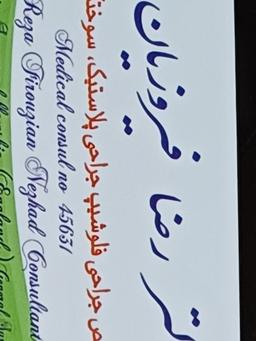 کتر رضا فیروزیان
ص جراحی فلوشیپ جراحی پلاستیک، سوختـ
Medical consul no 45631
Reza Firouzian Nezhad Consultant
(England)